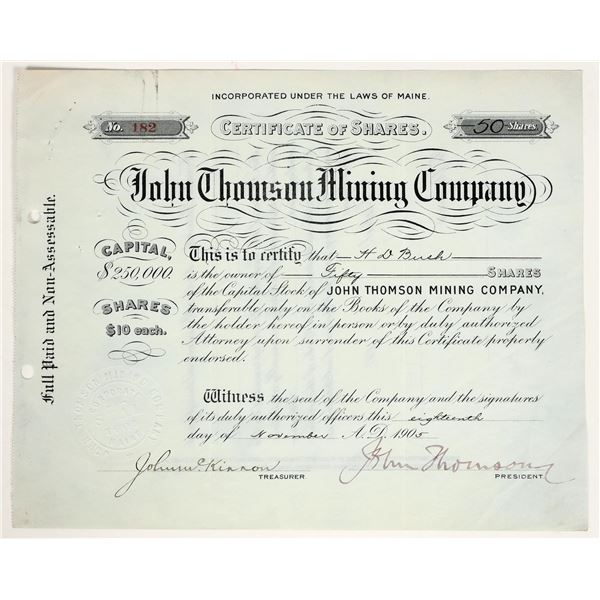 INCORPORATED UNDER THE LAWS OF MAINE.
No. 182
CERTIFICATE OF SHARES.
50 Shares
John Thomson Mining Company
Full Paid and Non-Assessable.
CAPITAL,
$250,000.
SHARES
$10 each.
This is to certify that H D Bush
is the owner of Fifty SHARES
of the Capital Stock of JOHN THOMSON MINING COMPANY,
transferable only on the Books of the Company by
the holder hereof in person or by duly authorized
Attorney upon surrender of this Certificate properly
endorsed.
Witness the seal of the Company and the signatures
of its duly authorized officers this eighteenth
day of November A.D. 1905
John McKinnon
TREASURER.
John Thomson
PRESIDENT.